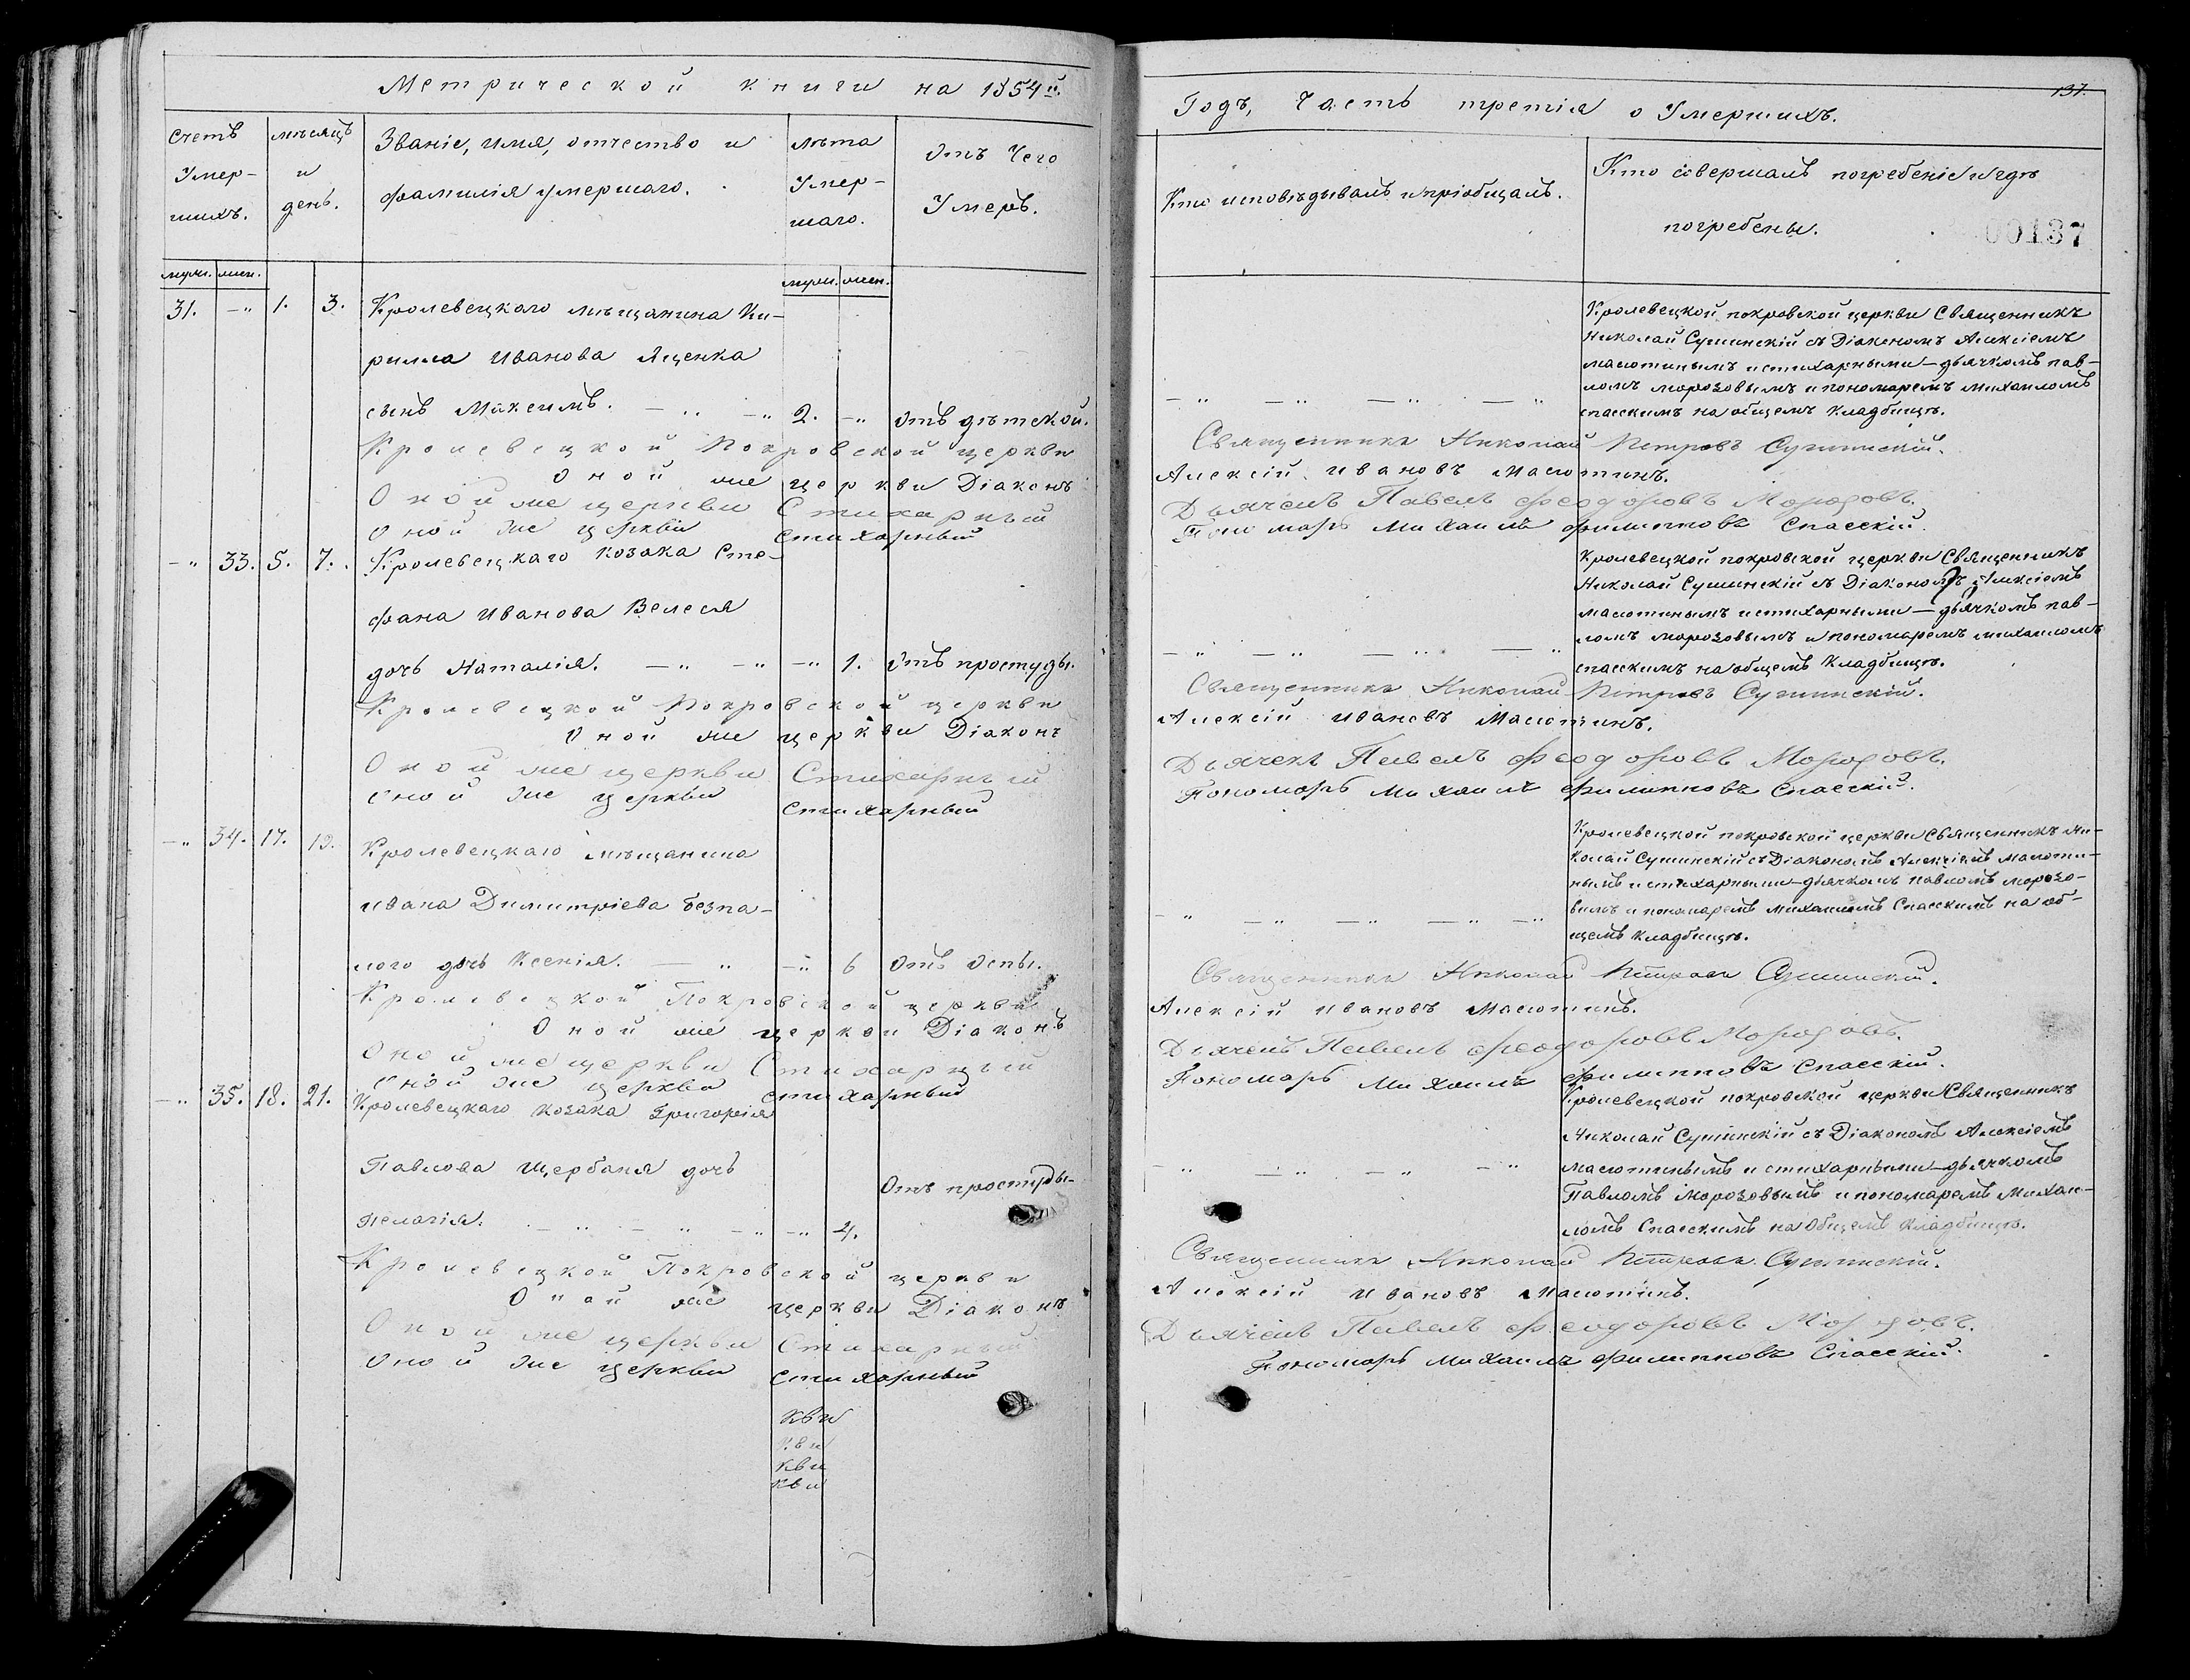 Метрической книги на 1854й.
Счетъ Умер- шихъ.
мѣсяцъ и день.
Званіе, имя, отчество и
фамилія умершаго.
лѣта Умер- шаго.
Отъ Чего
Умеръ.
муж. жен.
муж. жен.
31. -„ 1. 3. Кролевецкаго мѣщанина Ки-
рилла Иванова Яценка
сынъ Максимъ. — „ -„ 2. -„ Отъ дѣтской.
Кролевецкой Покровской церкви
Оной же церкви Діаконъ
Оной же церкви Стихарный
Оной же церкви стихарный
-„ 33. 5. 7. Кролевецкаго козака Сте-
фана Иванова Велеся
дочь Наталія. — „ -„ -„ 1. Отъ простуды.
Кролевецкой Покровской церкви
Оной же церкви Діаконъ
Оной же церкви Стихарный
Оной же церкви стихарный
-„ 34. 17. 19. Кролевецкаго мѣщанина
Ивана Димитріева Безпа-
лого дочь Ксенія. — „ -„ 6 Отъ оспы.
Кролевецкой Покровской церкви
Оной же церкви Діаконъ
Оной же церкви Стихарный
Оной же церкви стихарный
-„ 35. 18. 21. Кролевецкаго козака Григорія
Павлова Щербаня дочь
Отъ простуды-
Пелагія. — „ — „ -„ -„ 4.
Кролевецкой Покровской церкви
Оной же церкви Діаконъ
Оной же церкви Стихарный
Оной же церкви стихарный
кви
кви
кви
кви
137.
Годъ, Часть третія о Умершихъ.
Кто исповѣдывалъ и пріобщалъ.
Кто совершалъ погребеніе и гдѣ
погребены.
00137
Кролевецкой покровской церкви Священникъ
Николай Сушинскій съ Діакономъ Алексіемъ
Малютинымъ и стихарными — дьячкомъ Пав-
ломъ Морозовымъ и пономаремъ Михаиломъ
Спасскимъ на общемъ кладбищѣ.
Священникъ Николай Петровъ Сушинскій.
Алексій Ивановъ Малютинъ.
Дьячекъ Павелъ Феодоровъ Морозовъ.
Пономарь Михаилъ Филипповъ Спасскій.
Кролевецкой покровской церкви Священникъ
Николай Сушинскій съ Діакономъ Алексіемъ
Малютинымъ и стихарными — дьячкомъ Пав-
ломъ Морозовымъ и пономаремъ Михаиломъ
Спасскимъ на общемъ кладбищѣ.
Священникъ Николай Петровъ Сушинскій.
Алексій Ивановъ Малютинъ.
Дьячекъ Павелъ Феодоровъ Морозовъ.
Пономарь Михаилъ Филипповъ Спасскій.
Кролевецкой покровской церкви Священникъ Ни-
колай Сушинскій съ Діакономъ Алексіемъ Малюти-
нымъ и стихарными — дьячкомъ Павломъ Морозо-
вымъ и пономаремъ Михаиломъ Спасскимъ на об-
щемъ кладбищѣ.
Священникъ Николай Петровъ Сушинскій.
Алексій Ивановъ Малютинъ.
Дьячекъ Павелъ Феодоровъ Морозовъ.
Пономарь Михаилъ Филипповъ Спасскій.
Кролевецкой покровской церкви Священникъ
Николай Сушинскій съ Діакономъ Алексіемъ
Малютинымъ и стихарными — дьячкомъ
Павломъ Морозовымъ и пономаремъ Михаи-
ломъ Спасскимъ на общемъ кладбищѣ.
Священникъ Николай Петровъ Сушинскій.
Алексій Ивановъ Малютинъ.
Дьячекъ Павелъ Феодоровъ Морозовъ.
Пономарь Михаилъ Филипповъ Спасскій.